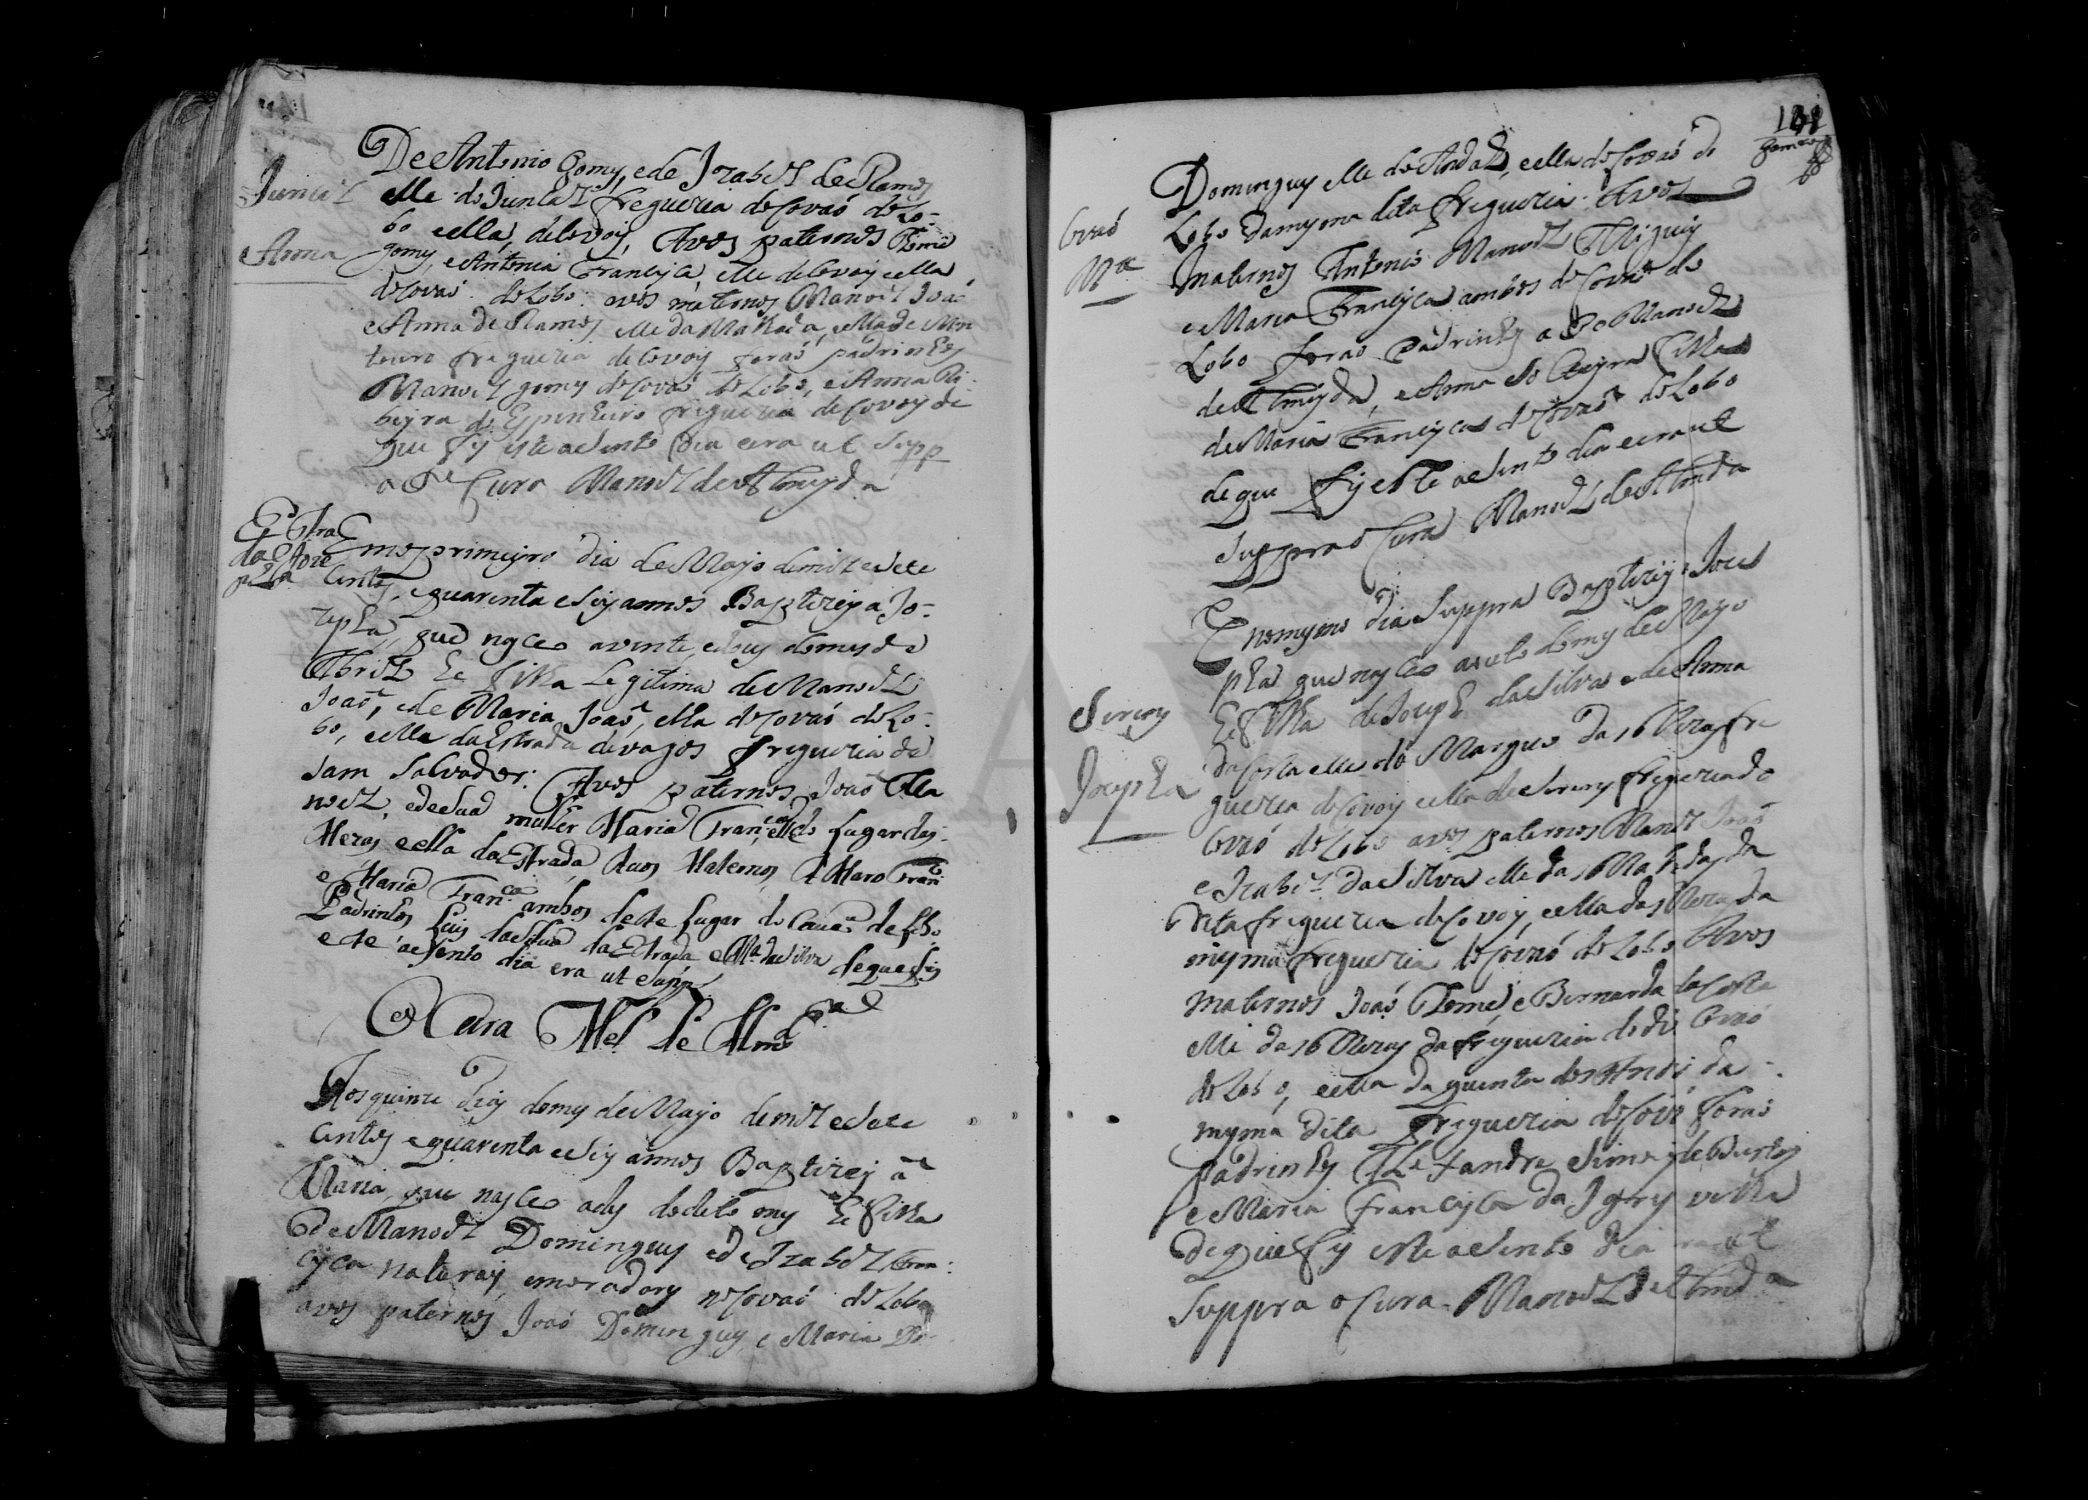 De Antonio Gomes, e de Izabel de Ramos
Juncal
elle do Juncal freguezia de Covaõ do Lo-
bo e ella de Covois, Avos paternos Thome
Anna
gomes, e Antonia Francisca, elle de Covois e ella
de Covaõ do Lobo. avos maternos Manoel Joaõ
e Anna de Ramos, elle da e ella de Mon
touro freguezia de Covois foraõ padrinhos
Manoel gomes de Covaõ do Lobo, e Anna Ri-
beyra do Espinheiro freguezia de Covois de
que fis este asento dia e era ut supp
o P.e Cura Manoel de Almeyda
Estra
da Joze
pha
Em os primeyro dia de Mayo de mil e sete
centos, e quarenta e seis annos Baptizei a Jo-
zepha, que nasceo a vinte e dous do mes de
Abril he filha Legitima de Manoel
Joaõ, e de Maria Joaõ, ella de Covaõ do Lo-
bo, e elle da Estrada de vagos freguezia de
sam salvador: Avos paternos Joaõ Ma
noel, e de sua mulher Maria Fran.ca elle do lugar das
Meras e ella da Estrada Auos Maternos Alvaro Fran.
e Maria Fran.ca ambos deste lugar do Cauaõ do Lobo
Padrinhos Luis da Silua da Estrada e M.a da Silva de que fis
este asento dia era ut supp
O Cura M.el de Alm.da
Aos quinze dias do mes de Mayo de mil e sete
centos e quarenta e seis annos Baptizei a
Maria, que nasceo a des do dito mes he filha
de Manoel Domingues e de Izabel Fran-
cisca naturais, e moradores no Covaõ do Lobo
avos paternos Joaõ Domingues, e Maria Do-
181
Gomes
Domingues elle do Andal, e ella do Covaõ do
Covaõ
Lobo da mesma dita freguezia. Avos
M.a
maternos Antonio Manoel Migueis
e Maria Francisca ambos do Covaõ do
Lobo foraõ Padrinhos o P.e Manoel
de Almeyda, e Anna filha
de Maria Francisca do Covaõ do Lobo
de que fis este asento dia e era ut
suppra o Cura Manoel de Almda
Em o mesmo dia suppra Baptizei a Joze
pha que nasceo a oito do mes de Mayo
Sercoy
he filha de Joseph da Silva e de Anna
Jozepha
da Costa elle do Marques da fre
guezia de Covois e ella de Sercoy freguezia do
Covaõ do Lobo avos paternos Manoel Joaõ
e Izabel da Silva elle da da
dita freguezia de Covois, e ella das Meras da
mesma freguezia do Covaõ do Lobo Avos
maternos Joaõ Thome e Bernarda da Costa
elle das Meras da freguezia do dito Covaõ
do Lobo, e ella da quinta dos Andal da
mesma dita freguezia do Covaõ foraõ
padrinhos Alexandre Simois de Bustos
e Maria Francisca da Igreja velha
de que fis este asento dia era ut
suppra o Cura Manoel de Almda